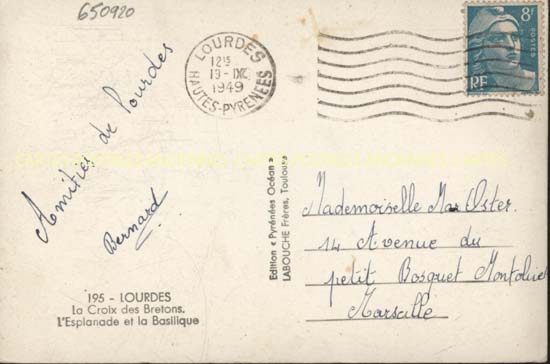 650920
LOURDES
12H15
19-DEC
1949
HAUTES-PYRENEES
8F
POSTES
RF
Amitiés de Lourdes
Bernard
195 - LOURDES
La Croix des Bretons.
L'Esplanade et la Basilique
Edition « Pyrénées Océan »
LABOUCHE Frères, Toulouse
Mademoiselle Oster.
14 Avenue du
petit Bosquet Montolivet
Marseille